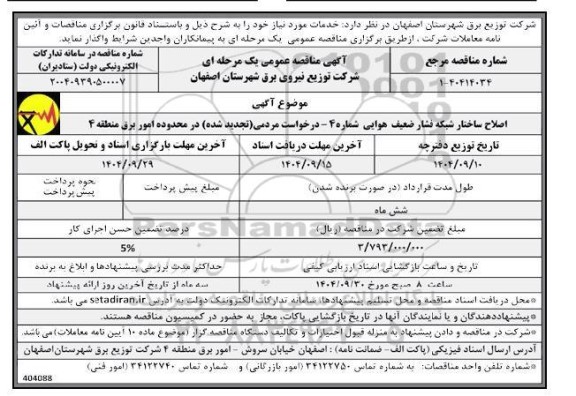 شرکت توزیع برق شهرستان اصفهان در نظر دارد: خدمات مورد نیاز خود را به شرح ذیل و باستناد قانون برگزاری مناقصات و آئین
نامه معاملات شرکت ، ازطریق برگزاری مناقصه عمومی یک مرحله ای به پیمانکاران واجدین شرایط واگذار نماید.
شماره مناقصه مرجع
۱-۴۰۴۱۴۰۳۴
آگهی مناقصه عمومی یک مرحله ای
شرکت توزیع نیروی برق شهرستان اصفهان
شماره مناقصه در سامانه تدارکات
الکترونیکی دولت (ستادیران)
۲۰۰۴۰۹۳۹۰۵۰۰۰۰۷
موضوع آگهی
اصلاح ساختار شبکه فشار ضعیف هوایی شماره۴ - درخواست مردمی(تجدید شده) در محدوده امور برق منطقه ۴
تاریخ توزیع دفترچه
آخرین مهلت دریافت اسناد
آخرین مهلت بارگزاری اسناد و تحویل پاکت الف
۱۴۰۴/۰۹/۱۰
۱۴۰۴/۰۹/۱۵
۱۴۰۴/۰۹/۲۹
طول مدت قرارداد (در صورت برنده شدن)
مبلغ پیش پرداخت
نحوه پرداخت
پیش پرداخت
شش ماه
مبلغ تضمین شرکت در مناقصه (ریال)
درصد تضمین حسن اجرای کار
۳/۷۹۳/۰۰۰/۰۰۰
5%
تاریخ و ساعت بازگشایی اسناد ارزیابی کیفی
حداکثر مدت بررسی پیشنهادها و ابلاغ به برنده
ساعت ۸ صبح مورخ ۱۴۰۴/۰۹/۳۰
سه ماه از تاریخ آخرین روز ارائه پیشنهاد
*محل دریافت اسناد مناقصه و محل تسلیم پیشنهادها: سامانه تدارکات الکترونیک دولت به آدرس setadiran.ir می باشد.
*پیشنهاددهندگان و یا نمایندگان آنها در تاریخ بازگشایی پاکات، مجاز به حضور در کمیسیون مناقصه هستند.
*شرکت در مناقصه و دادن پیشنهاد به منزله قبول اختیارات و تکالیف دستگاه مناقصه گزار (موضوع ماده ۱۰ آیین نامه معاملات) می باشد.
آدرس ارسال اسناد فیزیکی (پاکت الف- ضمانت نامه) : اصفهان خیابان سروش - امور برق منطقه ۴ شرکت توزیع برق شهرستان اصفهان
*شماره تلفن واحد مناقصات: به شماره تماس ۳۴۱۲۲۷۵۰ (امور بازرگانی) و شماره تماس ۳۴۱۲۲۷۴۰ (امور فنی)
404088
ParsNamadData